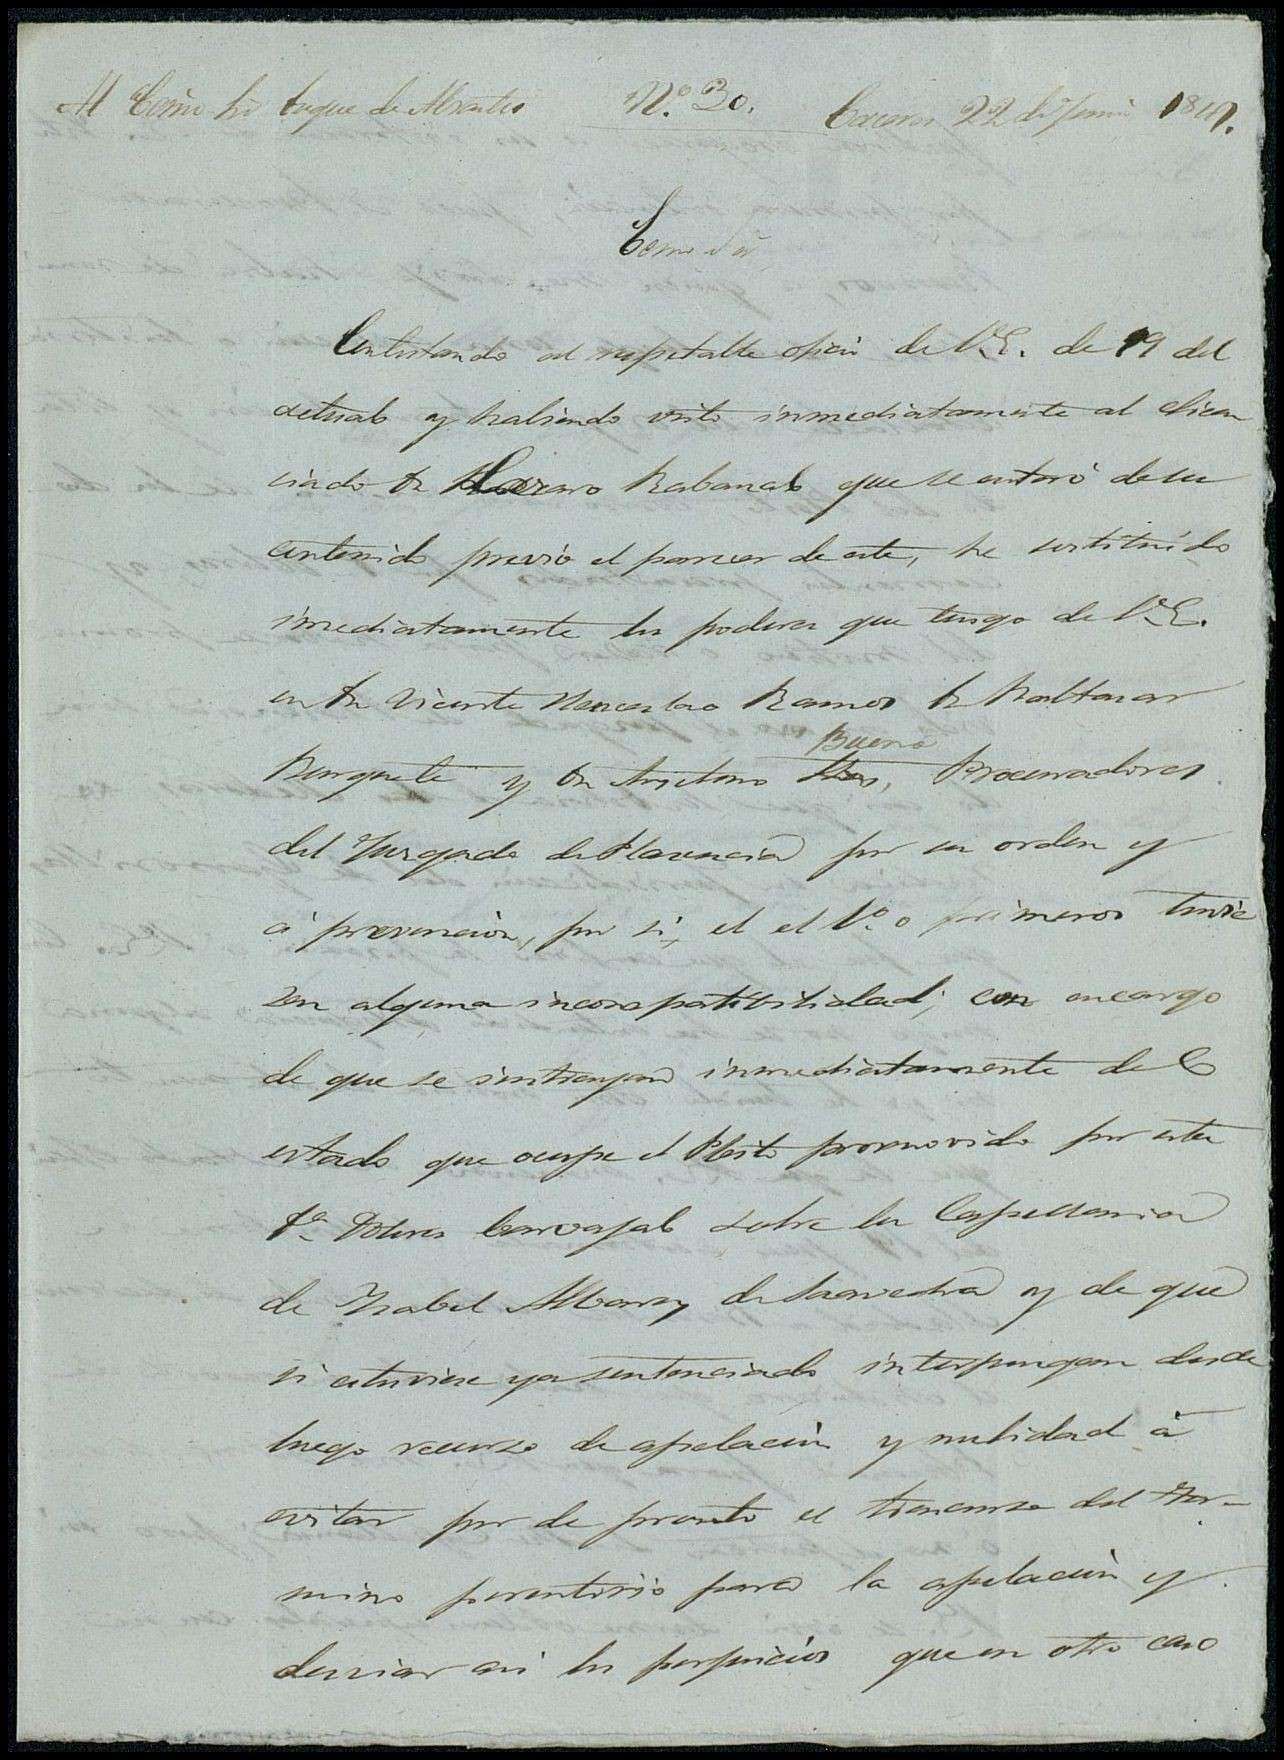 Al Exmo Sr Duque de Abrantes Nº 30. Caceres 22 de Junio 184
Exmo Sr
Contestando al respetable oficio de V.E. de 19 del
actual y habiendo visto inmediatamente al Licen
ciado Dn Rabanal que se enteró de su
contenido previo el parecer de este, he sostituido
inmediatamente los poderes que tengo de V.E.
en Dn Vicente Ramos Dn Baltasar
y Dn Bueno Procuradores
del Juzgado de Plasencia por su orden y
á prevencion, por si el el 1º o primeros tuvie
sen alguna incompatibilidad; con encargo
de que se instruyan inmediatamente del
estado que ocupe el Pleito promovido por esta
Dª Dolores Carvajal sobre la Capellania
de Ysabel Albarez de Saavedra y de que
si estuviese ya sentenciado interpongan desde
luego recurso de apelacion y nulidad á
evitar por de pronto el trancurso del ter-
mino perentorio para la apelacion y
desviar asi los perjuicios que en otro caso